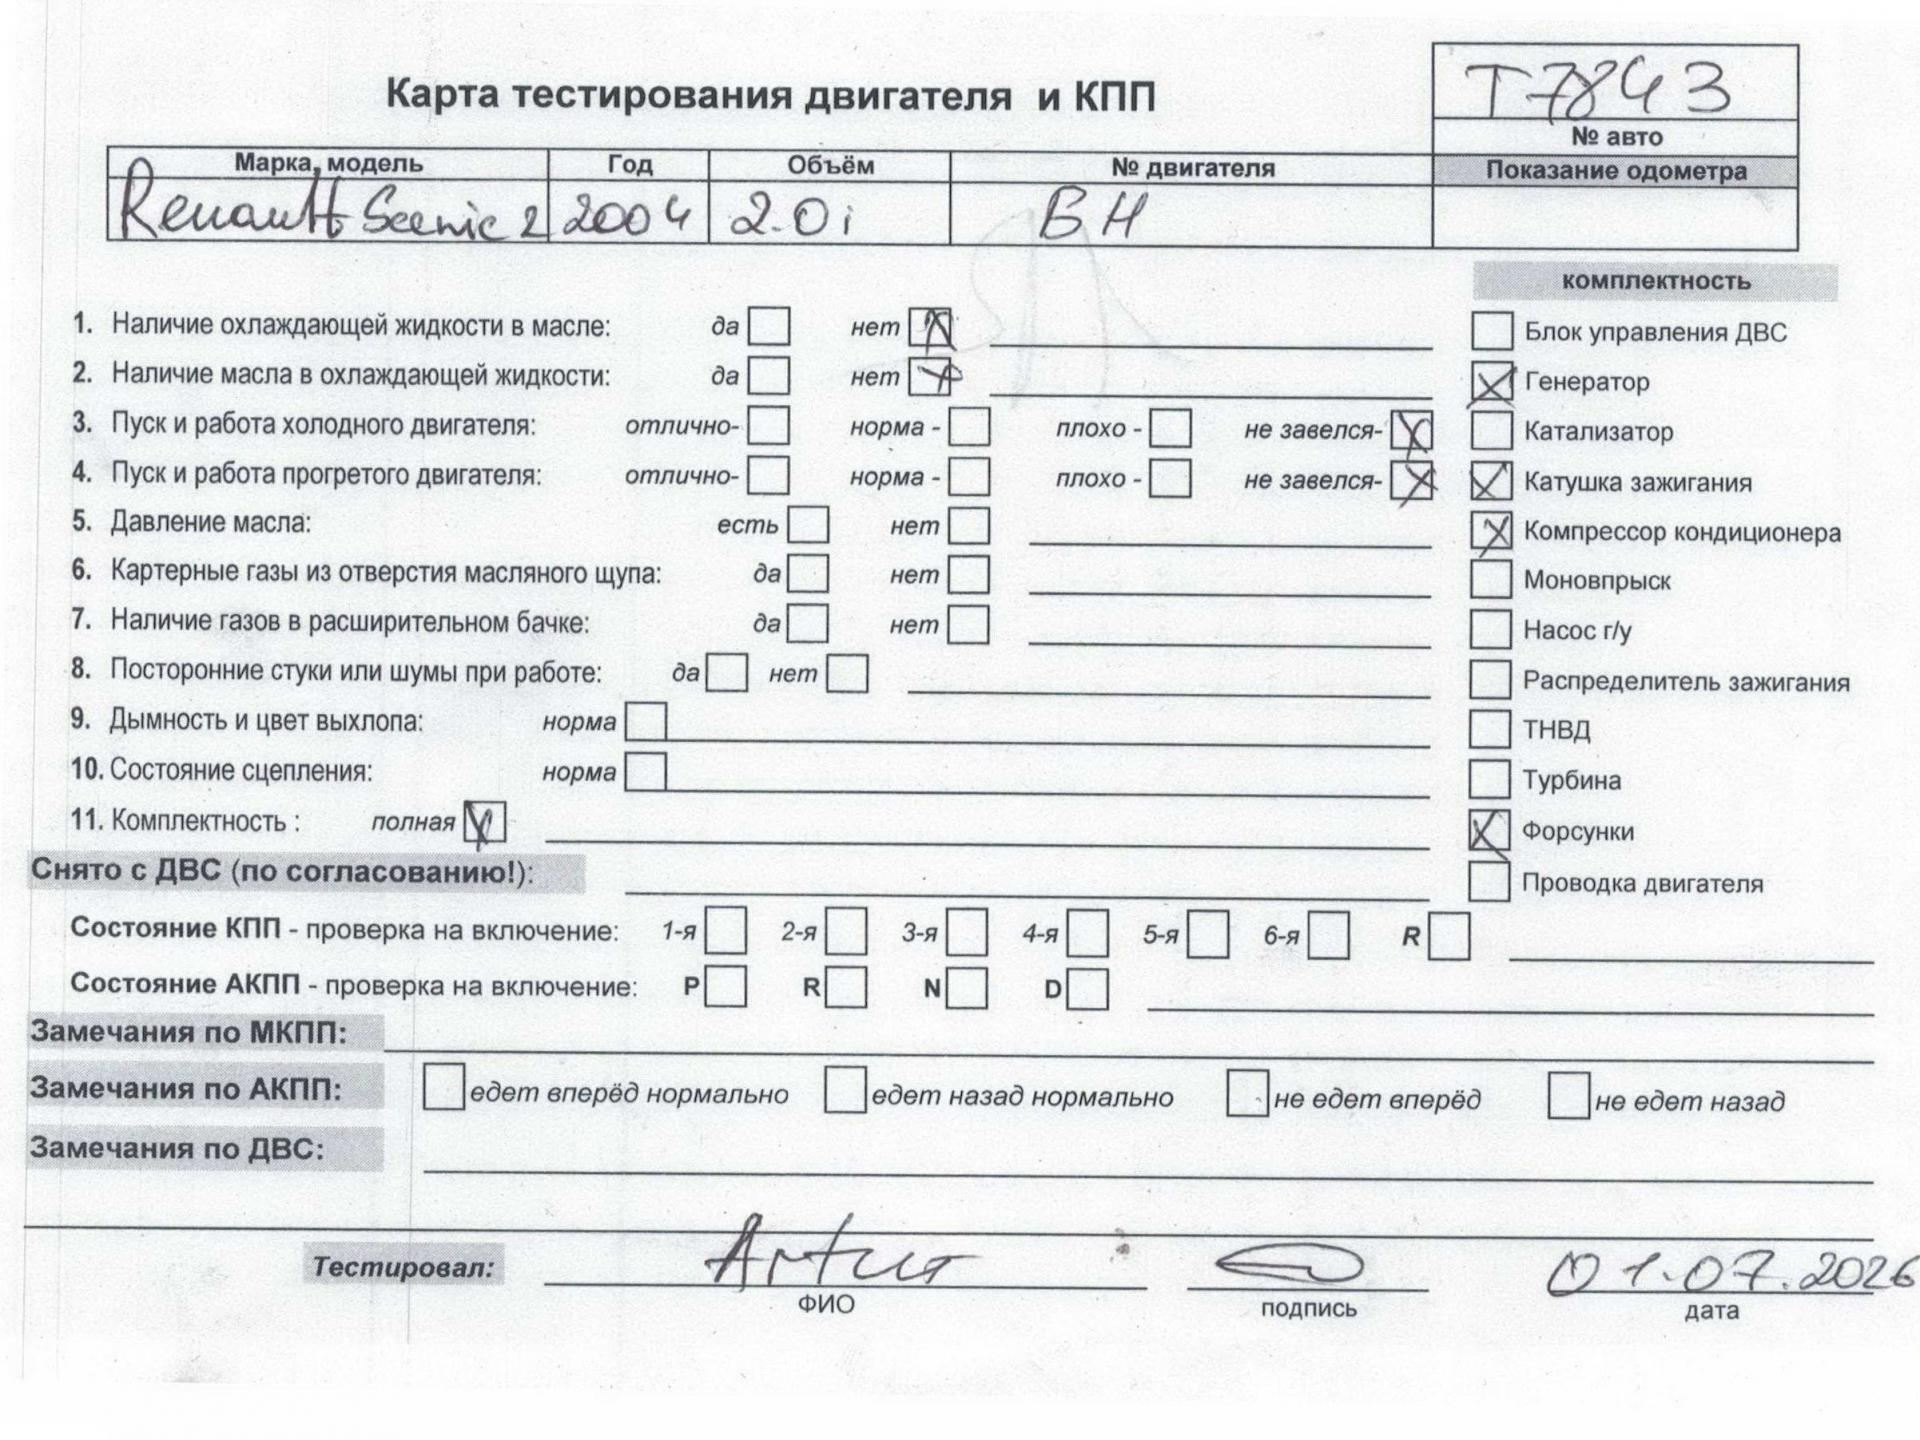 Карта тестирования двигателя и КПП
T7843
№ авто
Марка, модель Год Объём № двигателя Показание одометра
Renault Scenic 2 2004 2.0i ВН
комплектность
1. Наличие охлаждающей жидкости в масле: да нет
Блок управления ДВС
2. Наличие масла в охлаждающей жидкости: да нет
Генератор
3. Пуск и работа холодного двигателя: отлично- норма - плохо - не завелся-
Катализатор
4. Пуск и работа прогретого двигателя: отлично- норма - плохо - не завелся-
Катушка зажигания
5. Давление масла: есть нет
Компрессор кондиционера
6. Картерные газы из отверстия масляного щупа: да нет
Моновпрыск
7. Наличие газов в расширительном бачке: да нет
Насос г/у
8. Посторонние стуки или шумы при работе: да нет
Распределитель зажигания
9. Дымность и цвет выхлопа: норма
ТНВД
10. Состояние сцепления: норма
Турбина
11. Комплектность : полная
Форсунки
Снято с ДВС (по согласованию!):
Проводка двигателя
Состояние КПП - проверка на включение: 1-я 2-я 3-я 4-я 5-я 6-я R
Состояние АКПП - проверка на включение: P R N D
Замечания по МКПП:
Замечания по АКПП: едет вперёд нормально едет назад нормально не едет вперёд не едет назад
Замечания по ДВС:
Тестировал: Artur 01.07.2026
ФИО подпись дата